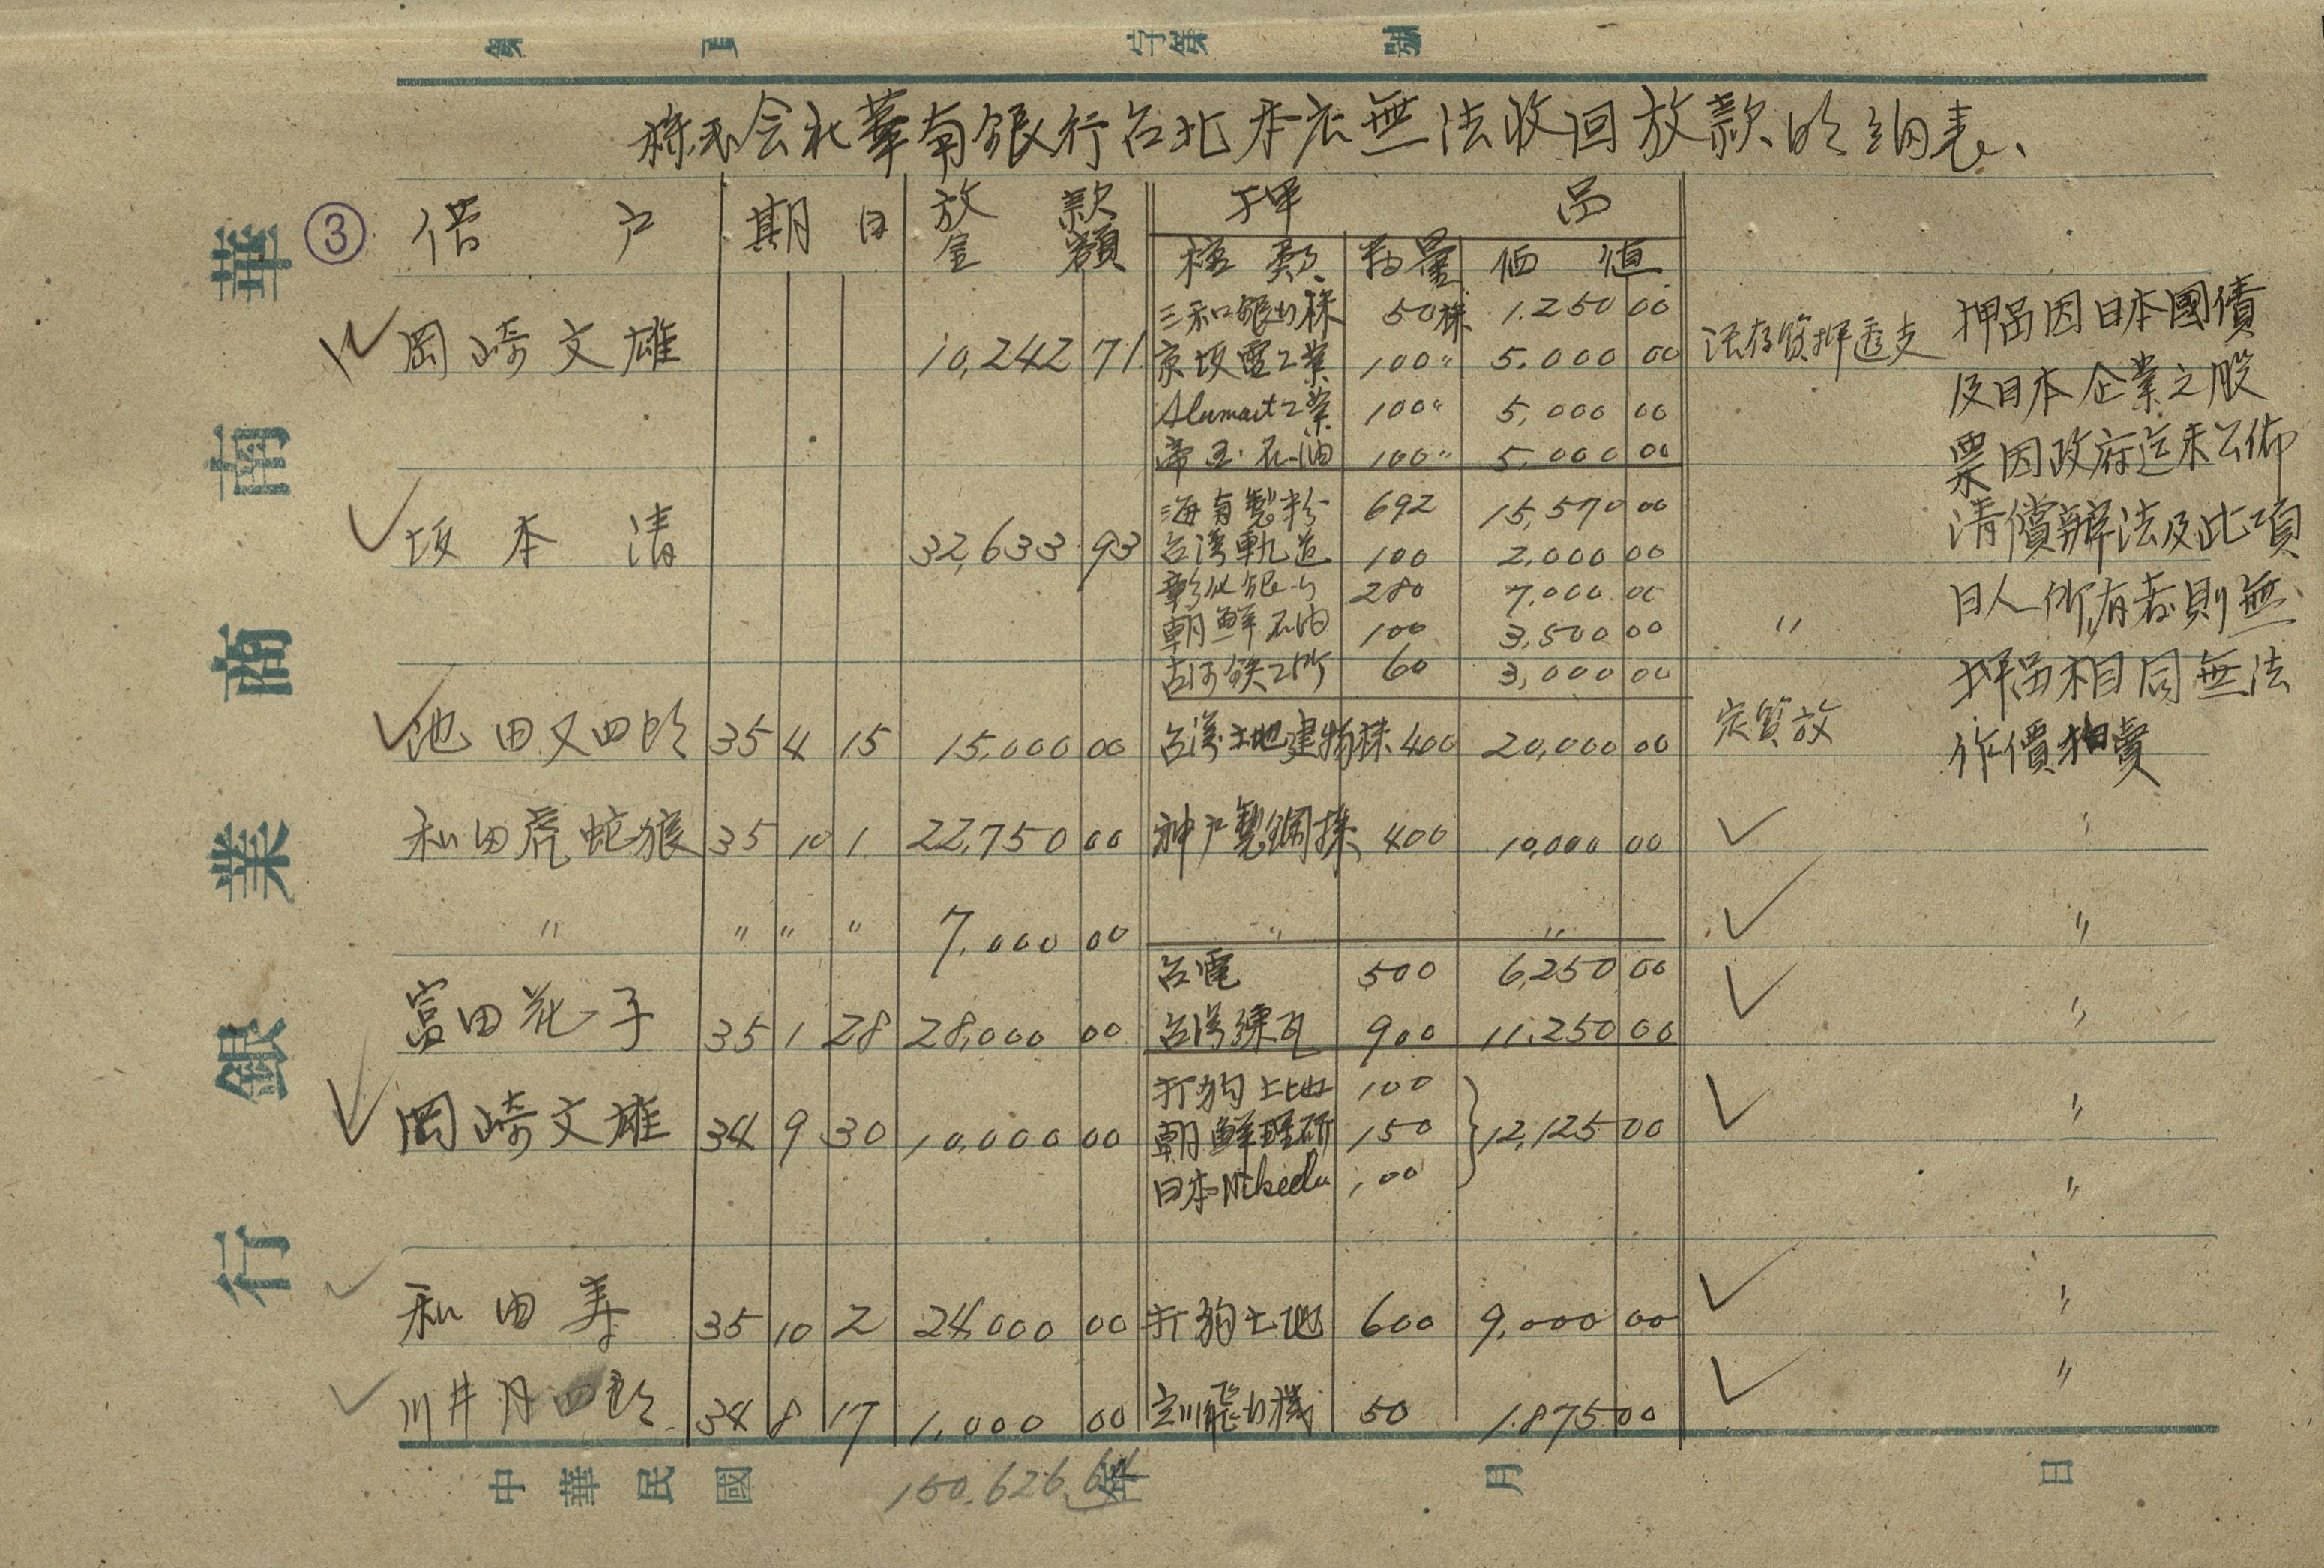 第 頁 字第 號
株式会社華南銀行台北本店無法收回放款明細表
華南商業銀行
③ 借戶 期日 放款金額 押品
種類 數量 価値
三和銀行株 50株 1.250 00
岡崎文雄 10,242 71 京坂電工業 100〃 5.000 00 活存質押透支
Alumait工業 100〃 5,000 00
帝国石油 100〃 5.000 00
海南製粉 692 15,570 00
坂本清 32,633 93 台湾軌道 100 2.000 00
彰化銀行 280 7,000 00
朝鮮石油 100 3,500 00 〃
古河鉄工所 60 3,000 00
池田又四郎 35 4 15 15.000 00 台湾土地建物株 400 20,000 00 定質放
和田虎蛇狼 35 10 1 22,750 00 神戸製鋼株 400 10,000 00 〃
〃 〃 〃 〃 7.000 00 〃 〃 〃
台電 500 6,250 00
富田花子 35 1 28 28,000 00 台湾煉瓦 900 11.250 00 〃
打狗土地 100
岡崎文雄 34 9 30 10,000 00 朝鮮理研 150 12,125 00 〃
日本 100 〃
和田寿 35 10 2 24,000 00 打狗土地 600 9,000 00 〃
川井月四郎 34 8 17 1,000 00 立川飛行機 50 1.875 00 〃
押品因日本國債
及日本企業之股
票因政府迄未公佈
清償辦法及此項
日人所有者則無
押品相同無法
作價拍賣
中華民國 年 月 日
150.626.64